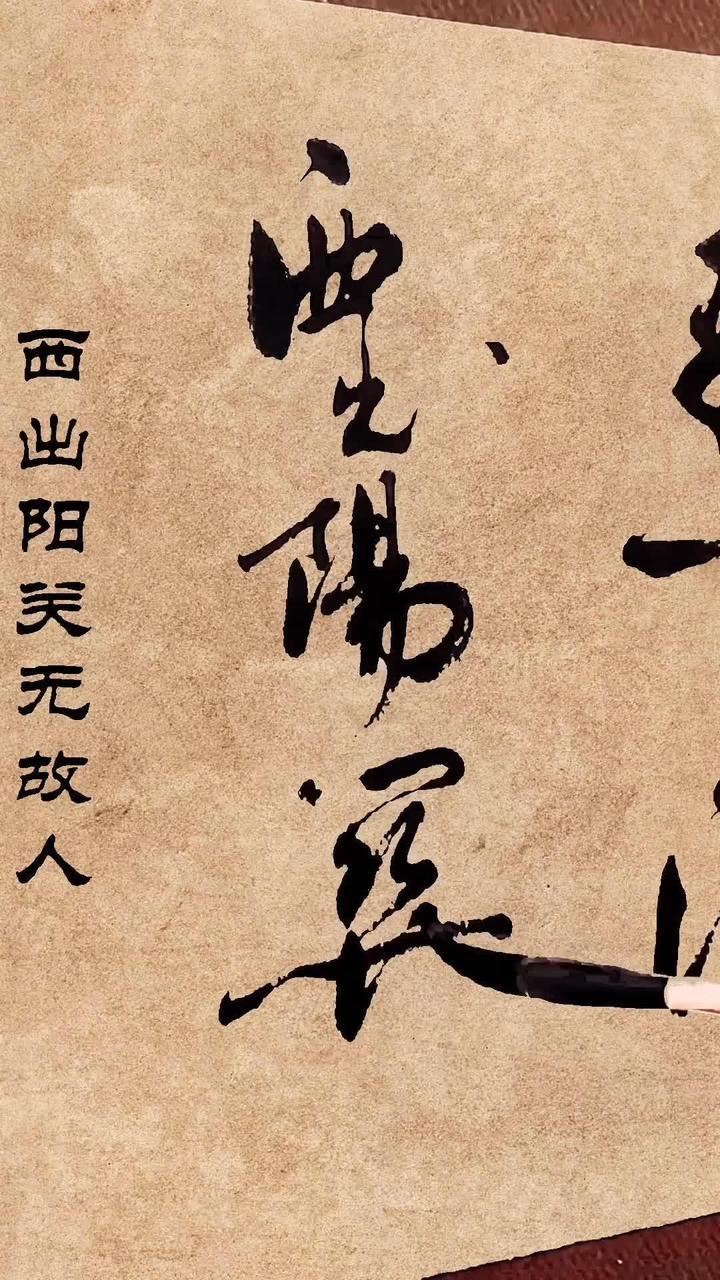 西出陽關
西出阳关无故人